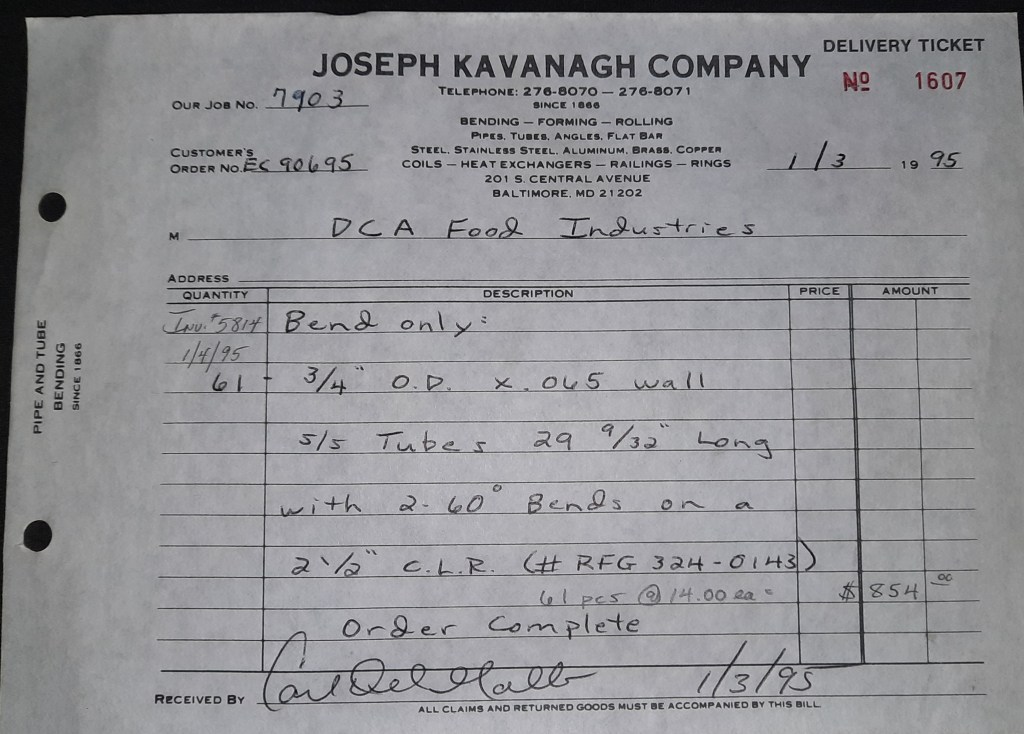 DELIVERY TICKET
JOSEPH KAVANAGH COMPANY
No 1607
TELEPHONE: 276-8070 — 276-8071
SINCE 1866
OUR JOB NO. 7903
BENDING — FORMING — ROLLING
PIPES, TUBES, ANGLES, FLAT BAR
STEEL, STAINLESS STEEL, ALUMINUM, BRASS, COPPER
CUSTOMER'S
ORDER NO. EC 90695
COILS — HEAT EXCHANGERS — RAILINGS — RINGS
1/3 19 95
201 S. CENTRAL AVENUE
BALTIMORE, MD 21202
M DCA Food Industries
ADDRESS
QUANTITY DESCRIPTION PRICE AMOUNT
Inv. #5814 Bend only:
1/4/95
61 - 3/4" O.D. x .065 wall
S/S Tubes 29 9/32" Long
with 2-60° Bends on a
2 1/2" C.L.R. (# RFG 324-0143)
61 pcs @ 14.00 ea = $ 854 00
Order Complete
RECEIVED BY 1/3/95
ALL CLAIMS AND RETURNED GOODS MUST BE ACCOMPANIED BY THIS BILL
PIPE AND TUBE
BENDING
SINCE 1866